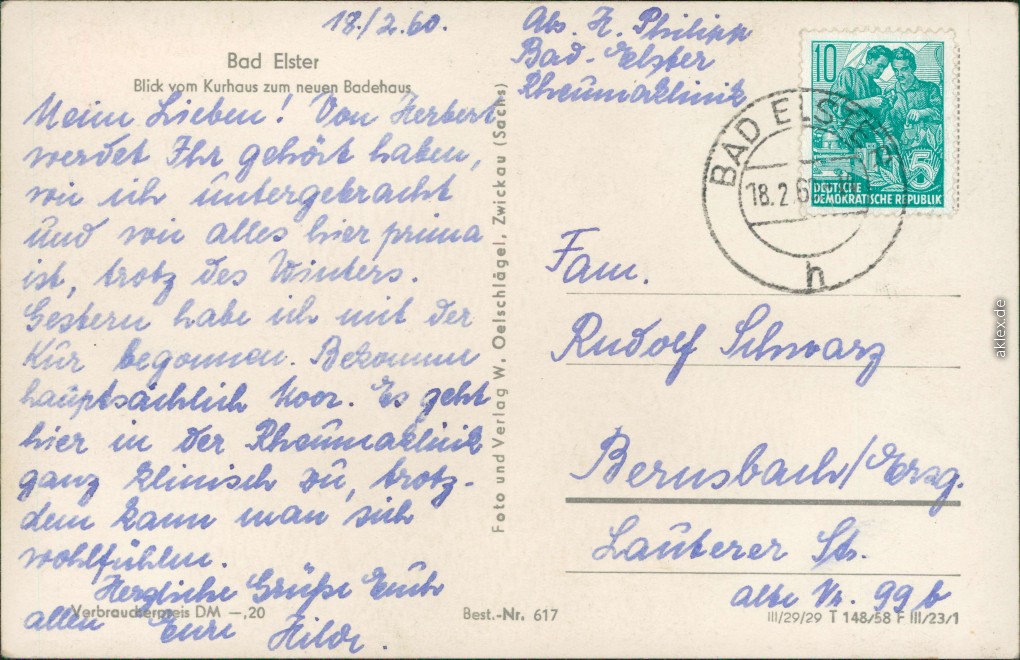 18./2.60.
Bad Elster
Blick vom Kurhaus zum neuen Badehaus
Meine Lieben! Von Herbert
werdet Ihr gehört haben,
wie ich untergebracht
und wie alles hier prima
ist, trotz des Winters.
Gestern habe ich mit der
Kur begonnen. Bekomme
hauptsächlich Moor. Es geht
hier in der Rheumaklinik
ganz klinisch zu, trotz-
dem kann man sich
wohlfühlen.
Herzliche Grüße Euch
allen Eure Hilde.
Verbraucherpreis DM —,20
Best.-Nr. 617
Foto und Verlag W. Oelschlägel, Zwickau (Sachs)
Abs. H. Philipp
Bad-Elster
Rheumaklinik
10
5
DEUTSCHE
DEMOKRATISCHE REPUBLIK
BAD ELSTER
18. 2. 6
h
Fam.
Rudolf Schwarz
Bernsbach/Erzg.
Lauterer Str.
alte Nr. 99 b
III/29/29 T 148/58 F III/23/1
aklex.de